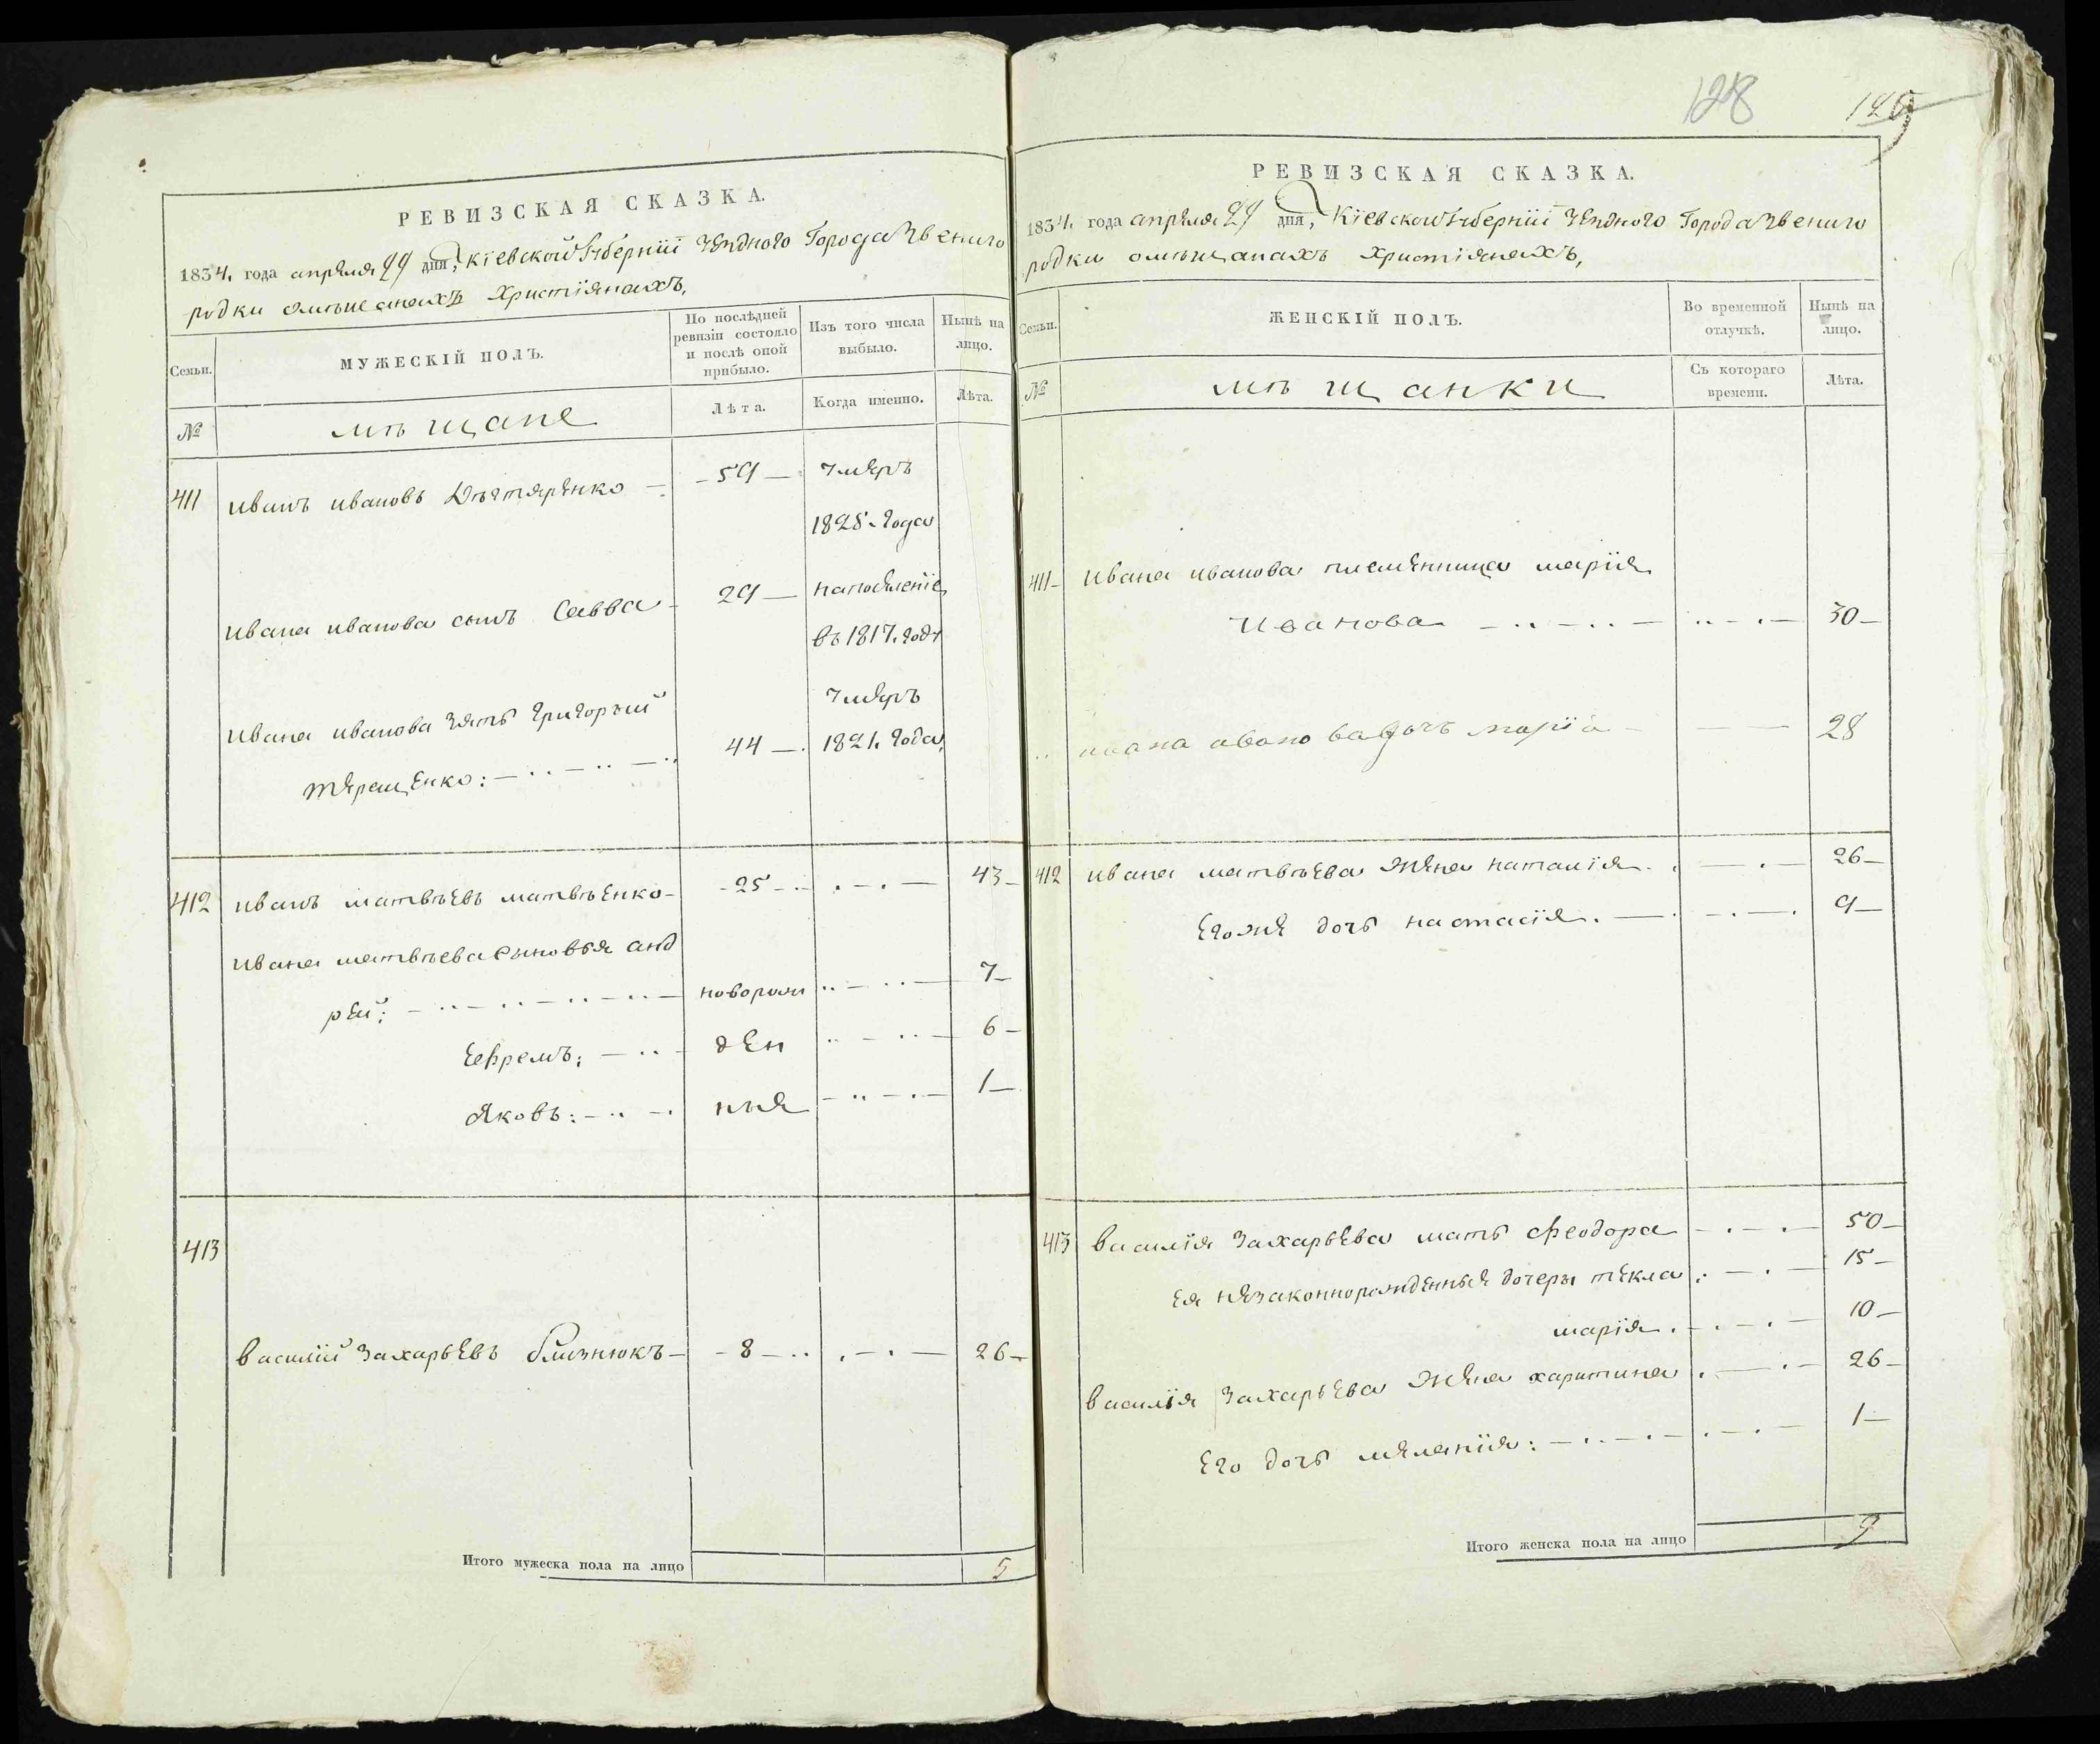 РЕВИЗСКАЯ СКАЗКА.
1834. года апреля 29 дня, Кіевской Губерніи уездного Города Звениго
родки омѣщанахъ Христіянахъ,
Семьи.
МУЖЕСКІЙ ПОЛЪ.
По послѣдней ревизіи состояло и послѣ оной прибыло.
Изъ того числа выбыло.
Нынѣ на лицо.
№
мѣщане
Лѣта.
Когда именно.
Лѣта.
411 иванъ ивановъ Дѣхтяренко — 59 — умеръ
1828. года
ивана иванова сынъ Савва — 29 —
въ 1817. году
умеръ
ивана иванова зять григорий
44 — 1821. года,
терещенко:
412 иванъ матвѣевъ матвѣенко — 25 — 43
ивана матвѣева сыновья анд
рей: новорож 7
Ефремъ: ден 6
Яковъ: ные 1
413
василій захарьевъ близнюкъ — 8 — 26
Итого мужеска пола на лицо 5
128
РЕВИЗСКАЯ СКАЗКА.
1834. года апреля 29 дня, Кіевской Губерніи уездного Города Звениго
родки омѣщанахъ Христіянахъ,
Семьи.
ЖЕНСКІЙ ПОЛЪ.
Во временной отлучкѣ.
Нынѣ на лицо.
№
мѣщанки
Съ котораго времени.
Лѣта.
411 ивана иванова племенница марія
Иванова 30
ивана иванова дочь марія 28
412 ивана матвѣева жена наталія 26
егоже дочь настасія. 9
413 василія захарьева мать феодора 50
ея незаконнорожденные дочери текла 15
марія. 10
василія захарьева жена харитина 26
его дочь меланія: 1
Итого женска пола на лицо 9